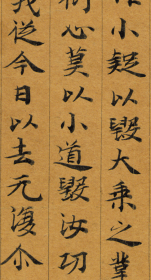 小疑以毀大乘之業
心莫以小道毀汝功
我從今日以去无復尒